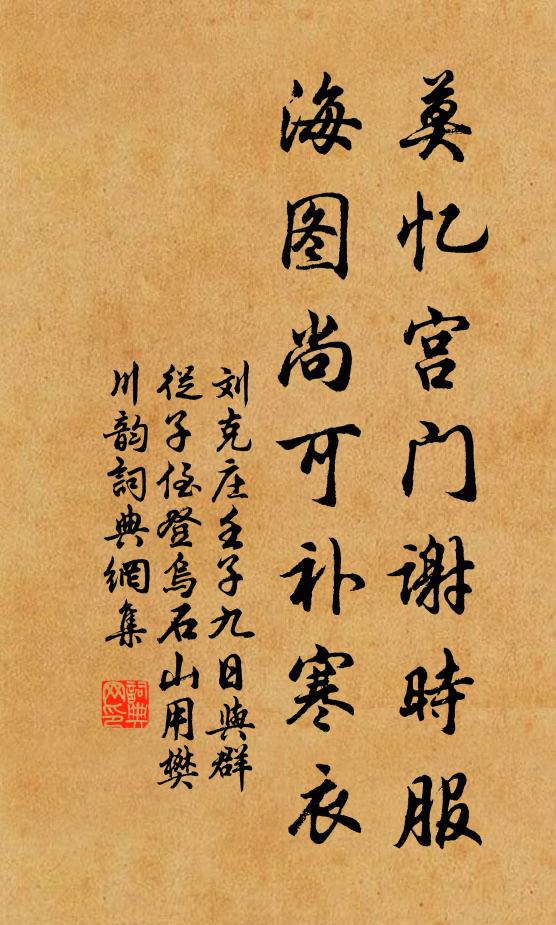 莫忆宫门谢時服
海图尚可补寒衣
刘克庄壬子九日與群
從子侄登烏石山用樊
川韵詞典網集
詞典網印